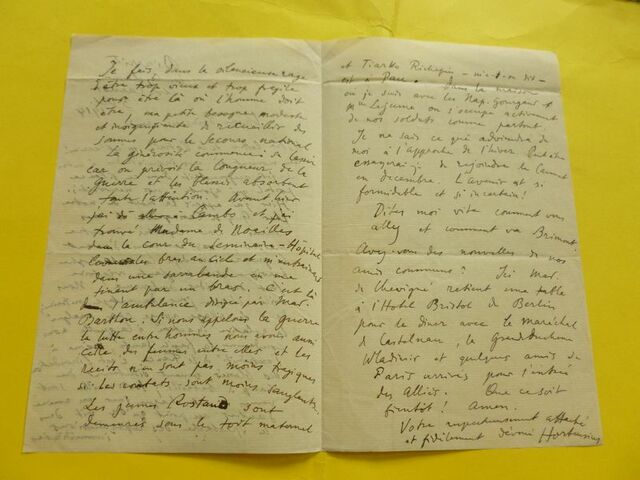 Je fais, dans la silencieuse rage
d'être trop vieux et trop fragile
pour être là où l'homme doit
être, ma petite besogne modeste
et insignifiante de recueillir des
sommes pour le secours national
La générosité commence à se lasser
car on prévoit la longueur de la
guerre et les blessés absorbent
toute l'attention. Avant hier
j'ai été à Cambo et j'ai
trouvé Madame de Noailles
dans la cour du Séminaire-Hôpital
les bras au ciel et m'entraînant
dans une sarabande en me
tenant par un bras. C'est là
l'ambulance dirigée par Mad.
Barthou. Si nous appelons la guerre
la lutte entre hommes nous avons aussi
celle des femmes entre elles et les
récits n'en sont pas moins tragiques
si les combats sont moins sanglants.
Les jeunes Rostand sont
demeurés sous le toit maternel
et Tiarko Richepin - m'a-t-on dit -
est à Pau. Dans la maison
où je suis avec les Nap. Gourgaud &
Mme Lejeune on s'occupe activement
de nos soldats comme partout
Je ne sais ce qui adviendra de
moi à l'approche de l'hiver. Peut être
essayerai-je de rejoindre le Cannet
en décembre. L'avenir est si
formidable et si incertain!
Dites moi vite comment vous
allez et comment va Brimont.
Avez-vous des nouvelles de nos
amis communs? Ici Mad.
de Chevigné retient une table
à l'Hotel Bristol de Berlin
pour le dîner avec le maréchal
de Castelnau, la Grande Duchesse
Wladimir et quelques amis de
Paris arrivés pour l'entrée
des Alliés. Que ce soit
bientôt! Amen.
Votre respectueusement attaché
et fidèlement dévoué